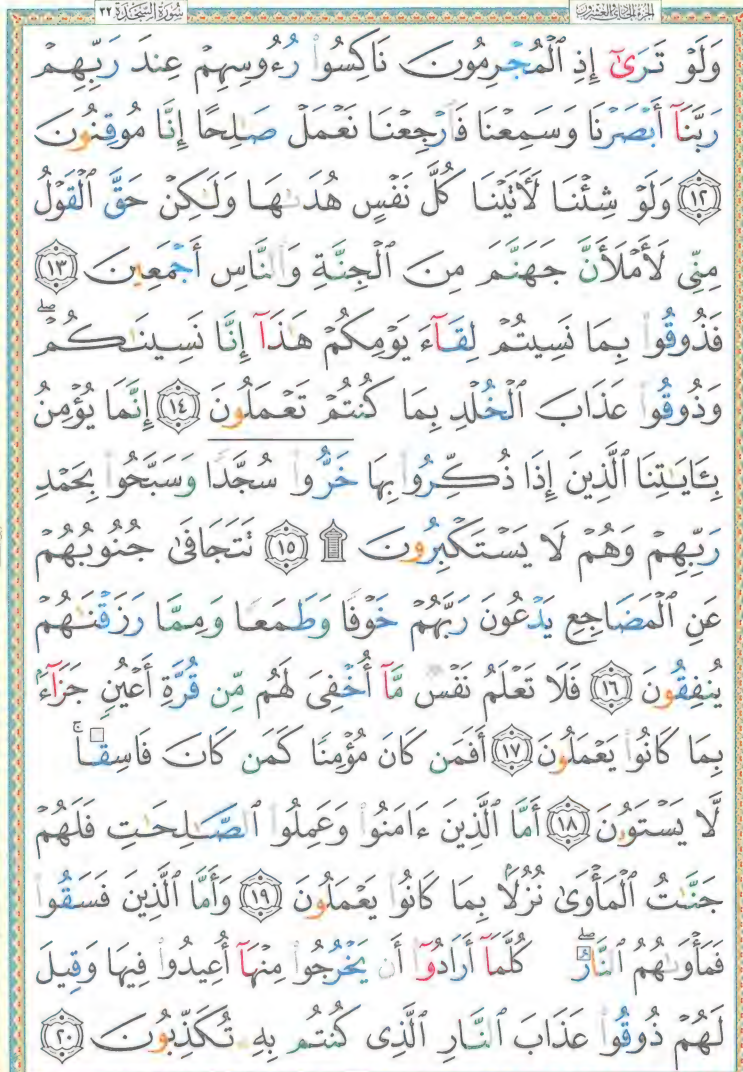 الجزء الحادي والعشرون
سُورَةُ السَّجْدَةِ ٣٢
وَلَوْ تَرَىٰٓ إِذِ ٱلْمُجْرِمُونَ نَاكِسُوا۟ رُءُوسِهِمْ عِندَ رَبِّهِمْ
رَبَّنَآ أَبْصَرْنَا وَسَمِعْنَا فَٱرْجِعْنَا نَعْمَلْ صَـٰلِحًا إِنَّا مُوقِنُونَ
﴿١٢﴾ وَلَوْ شِئْنَا لَـَٔاتَيْنَا كُلَّ نَفْسٍ هُدَىٰهَا وَلَـٰكِنْ حَقَّ ٱلْقَوْلُ
مِنِّى لَأَمْلَأَنَّ جَهَنَّمَ مِنَ ٱلْجِنَّةِ وَٱلنَّاسِ أَجْمَعِينَ ﴿١٣﴾
فَذُوقُوا۟ بِمَا نَسِيتُمْ لِقَآءَ يَوْمِكُمْ هَـٰذَآ إِنَّا نَسِينَـٰكُمْ ۖ
وَذُوقُوا۟ عَذَابَ ٱلْخُلْدِ بِمَا كُنتُمْ تَعْمَلُونَ ﴿١٤﴾ إِنَّمَا يُؤْمِنُ
بِـَٔايَـٰتِنَا ٱلَّذِينَ إِذَا ذُكِّرُوا۟ بِهَا خَرُّوا۟ سُجَّدًا وَسَبَّحُوا۟ بِحَمْدِ
رَبِّهِمْ وَهُمْ لَا يَسْتَكْبِرُونَ ۩ ﴿١٥﴾ تَتَجَافَىٰ جُنُوبُهُمْ
عَنِ ٱلْمَضَاجِعِ يَدْعُونَ رَبَّهُمْ خَوْفًا وَطَمَعًا وَمِمَّا رَزَقْنَـٰهُمْ
يُنفِقُونَ ﴿١٦﴾ فَلَا تَعْلَمُ نَفْسٌ مَّآ أُخْفِىَ لَهُم مِّن قُرَّةِ أَعْيُنٍ جَزَآءًۢ
بِمَا كَانُوا۟ يَعْمَلُونَ ﴿١٧﴾ أَفَمَن كَانَ مُؤْمِنًا كَمَن كَانَ فَاسِقًا ۚ
لَّا يَسْتَوُۥنَ ﴿١٨﴾ أَمَّا ٱلَّذِينَ ءَامَنُوا۟ وَعَمِلُوا۟ ٱلصَّـٰلِحَـٰتِ فَلَهُمْ
جَنَّـٰتُ ٱلْمَأْوَىٰ نُزُلًۢا بِمَا كَانُوا۟ يَعْمَلُونَ ﴿١٩﴾ وَأَمَّا ٱلَّذِينَ فَسَقُوا۟
فَمَأْوَىٰهُمُ ٱلنَّارُ ۖ كُلَّمَآ أَرَادُوٓا۟ أَن يَخْرُجُوا۟ مِنْهَآ أُعِيدُوا۟ فِيهَا وَقِيلَ
لَهُمْ ذُوقُوا۟ عَذَابَ ٱلنَّارِ ٱلَّذِى كُنتُم بِهِۦ تُكَذِّبُونَ ﴿٢٠﴾